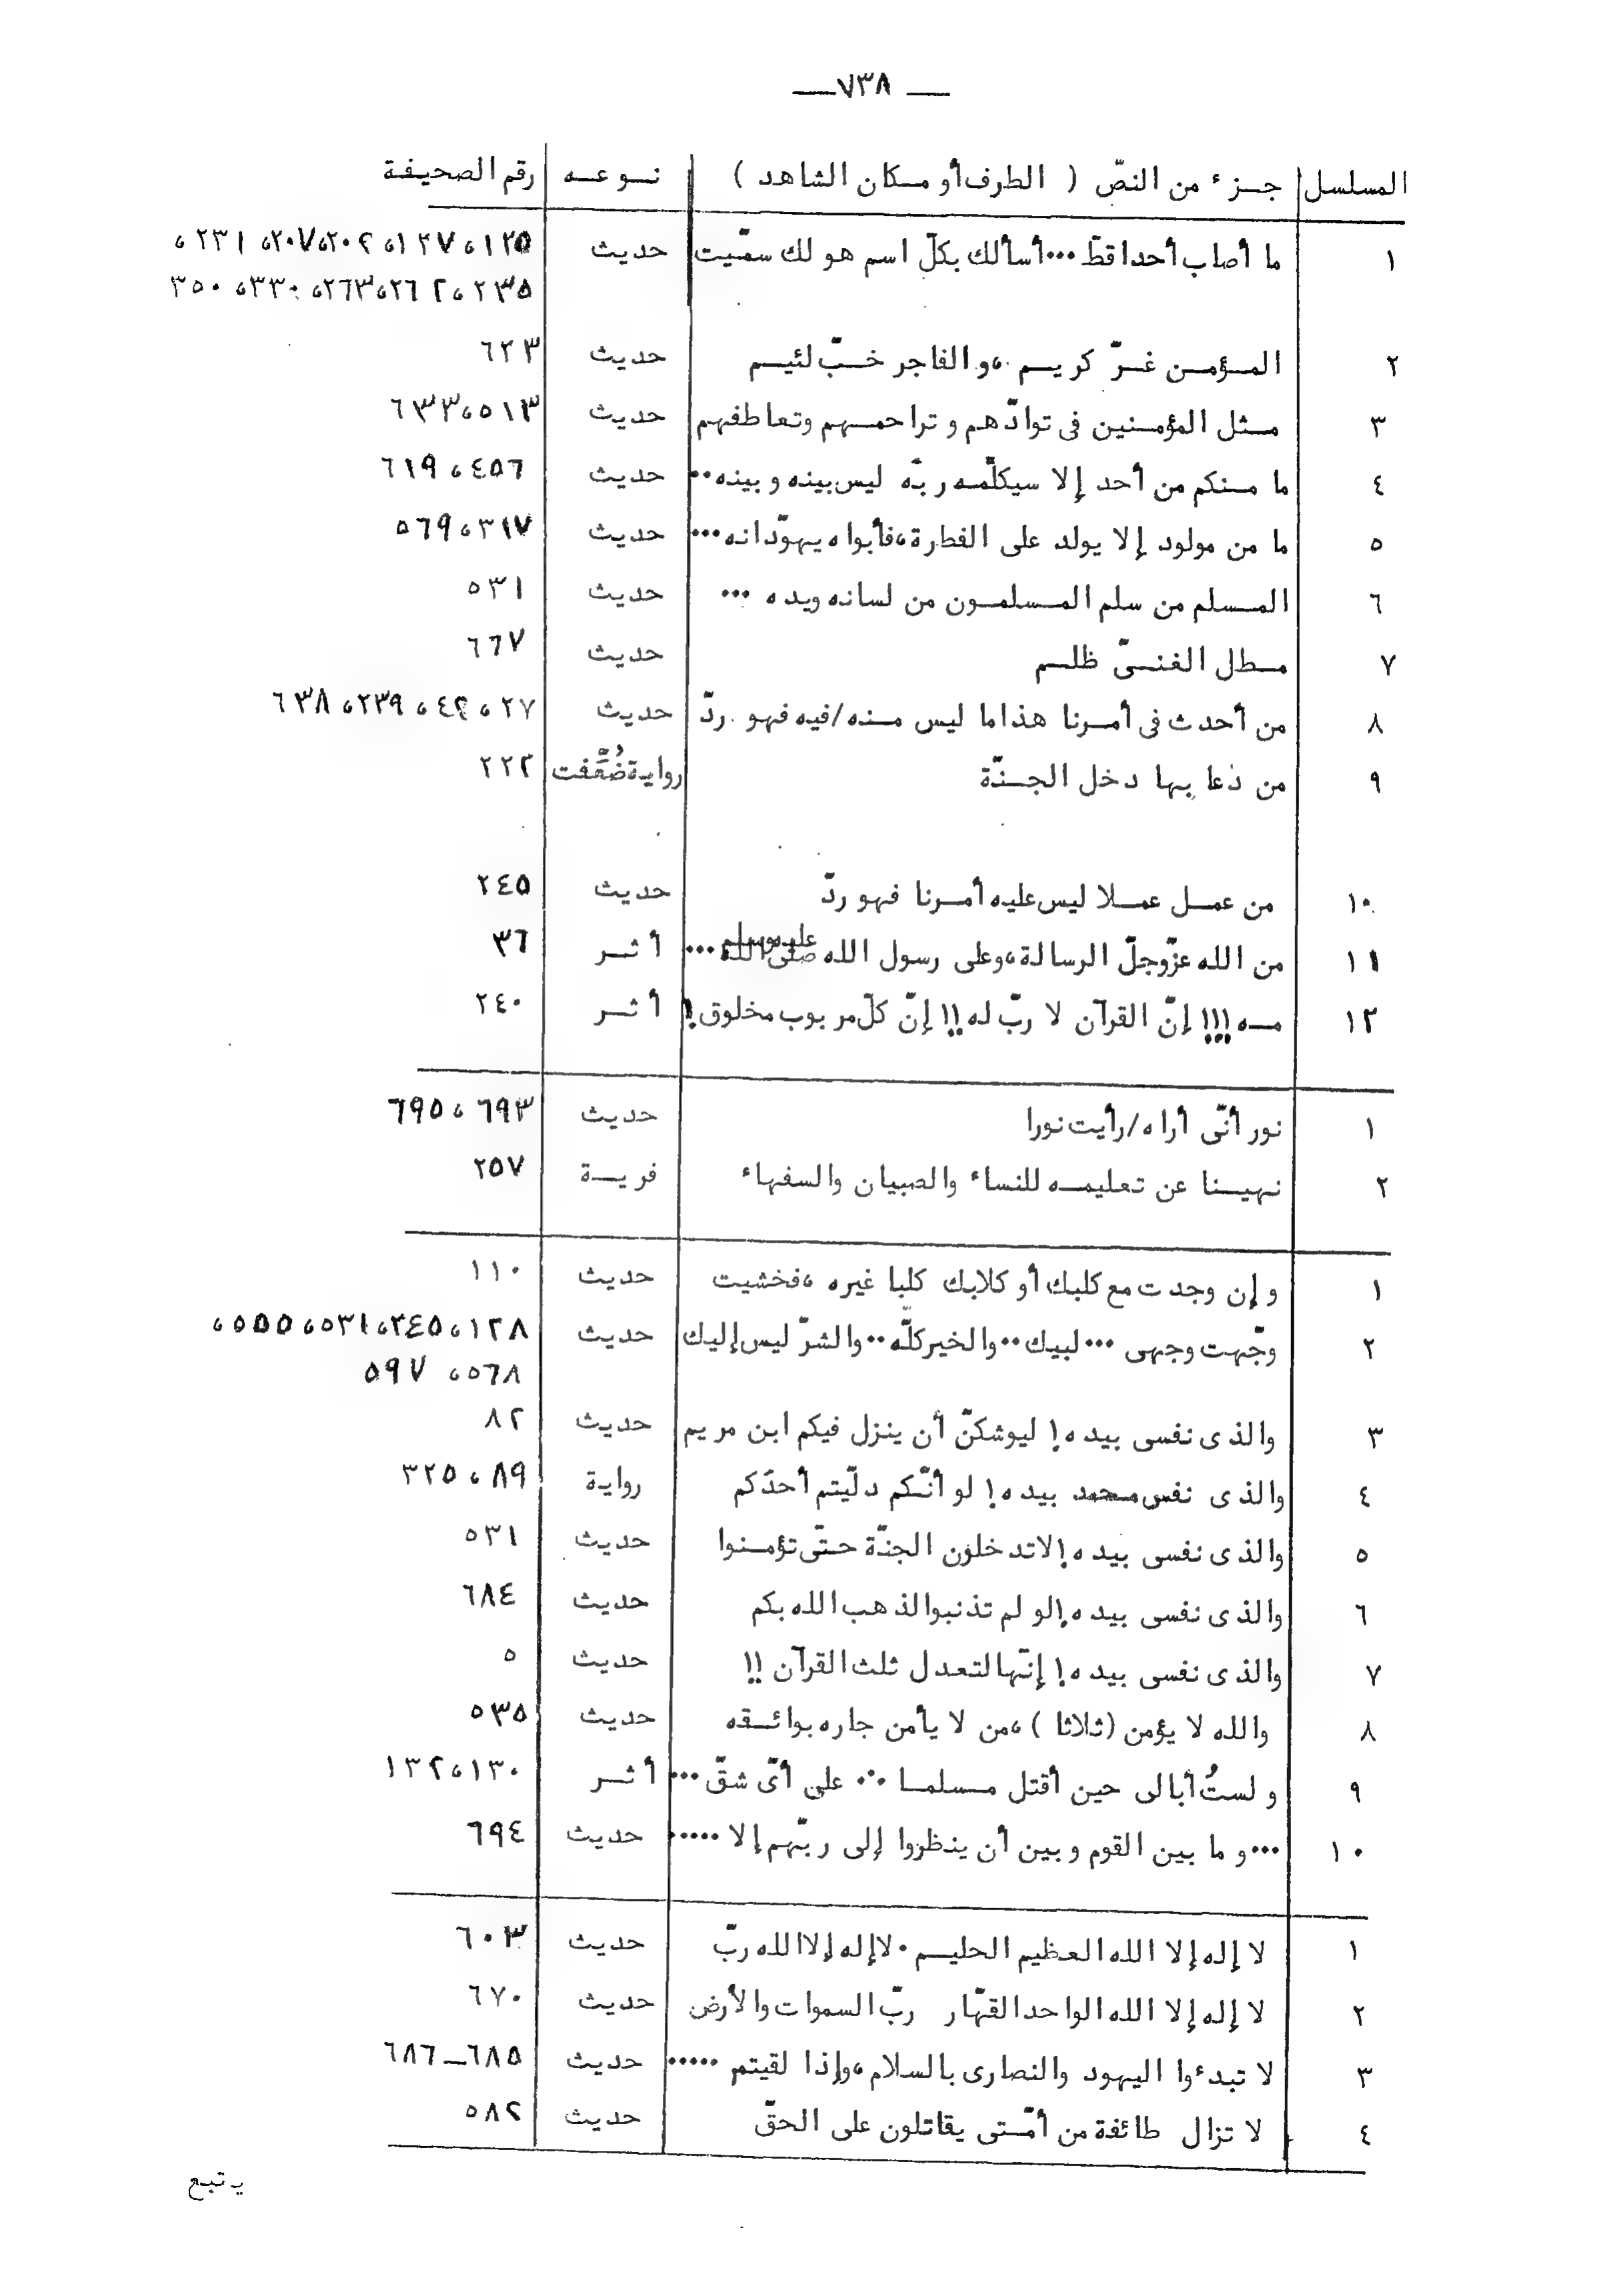 — ٧٣٨ —
المسلسل جـزء من النصّ ( الطرف أو مـكان الشاهد ) نـوعـه رقم الصحيفـة
١ ما أصاب أحدا قطّ ••• أسألك بكلّ اسم هو لك سمّيت حديث ١٢٥، ١٢٧، ٢٠٢، ٢٠٧، ٢٣١،
٢٣٥، ٢٦٢، ٢٦٣، ٣٣٠، ٣٥٠
٢ المـؤمـن غـرّ كريـم، والفاجر خـبّ لئيـم حديث ٦٢٣
٣ مـثل المؤمـنين فى توادّهم وتراحمـهم وتعاطفهم حديث ٥١٣، ٦٣٣
٤ ما مـنكم من أحد إلا سيكلّمـه ربّه ليس بينه وبينه •• حديث ٤٥٦، ٦١٩
٥ ما من مولود إلا يولد على الفطرة، فأبواه يهوّدانه ••• حديث ٣١٧، ٥٦٩
٦ المـسلم من سلم المـسلمـون من لسانه ويده ••• حديث ٥٣١
٧ مـطل الغنـىّ ظلـم حديث ٦٦٧
٨ من أحدث فى أمـرنا هذا ما ليس مـنه/فيه فهو ردّ حديث ٢٧، ٤٢، ٢٣٩، ٦٣٨
٩ من دعا بها دخل الجـنّة رواية ضُعِّفت ٢٢٢
١٠ من عمـل عمـلا ليس عليه أمـرنا فهو ردّ حديث ٢٤٥
١١ من الله عزّوجلّ الرسالة، وعلى رسول الله صلى الله عليه وسلم ••• أثـر ٣٦
١٢ مـه !!! إنّ القرآن لا ربّ له !! إنّ كلّ مربوب مخلوق! أثـر ٢٤٠
١ نور أنّى أراه/رأيت نورا حديث ٦٩٣، ٦٩٥
٢ نهيـنا عن تعليمـه للنساء والصبيان والسفهاء فريـة ٢٥٧
١ وإن وجدت مع كلبك أو كلابك كلبا غيره، فخشيت حديث ١١٠
٢ وجّهت وجهى ••• لبيك •• والخير كلّه •• والشرّ ليس إليك حديث ١٢٨، ٢٤٥، ٥٣١، ٥٥٥،
٥٦٨، ٥٩٧
٣ والذى نفسى بيده! ليوشكنّ أن ينزل فيكم ابن مريم حديث ٨٢
٤ والذى نفس مـحمد بيده! لو أنّـكم دلّيتم أحدكم رواية ٨٩، ٣٢٥
٥ والذى نفسى بيده! لاتدخلون الجنّة حـتّى تؤمـنوا حديث ٥٣١
٦ والذى نفسى بيده! لو لم تذنبوا لذهب الله بكم حديث ٦٨٤
٧ والذى نفسى بيده! إنّها لتعدل ثلث القرآن !! حديث ٥
٨ والله لا يؤمن (ثلاثا)، من لا يأمن جاره بوائـقه حديث ٥٣٥
٩ ولستُ أبالى حين أقتل مـسلمـا ••• على أىّ شقّ ••• أثـر ١٣٠، ١٣٢
١٠ ••• وما بين القوم وبين أن ينظروا إلى ربّهم إلا ••••• حديث ٦٩٤
١ لا إله إلا الله العظيم الحليـم • لا إله إلا الله ربّ حديث ٦٠٣
٢ لا إله إلا الله الواحد القهّار ربّ السموات والأرض حديث ٦٧٠
٣ لا تبدءوا اليهود والنصارى بالسلام، وإذا لقيتم ••••• حديث ٦٨٥ـ٦٨٦
٤ لا تزال طائفة من أمّـتى يقاتلون على الحقّ حديث ٥٨٢
يتبع